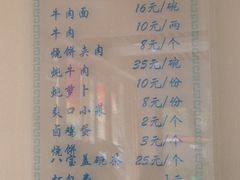 牛肉面 16元/碗
牛肉 10元/两
烧饼夹肉 8元/个
炖牛肉 35元/碗
炖萝卜 10元/份
爽口小菜 8元/份
卤鸡蛋 2元/个
烧饼 3元/个
八宝盖碗茶 25元/个